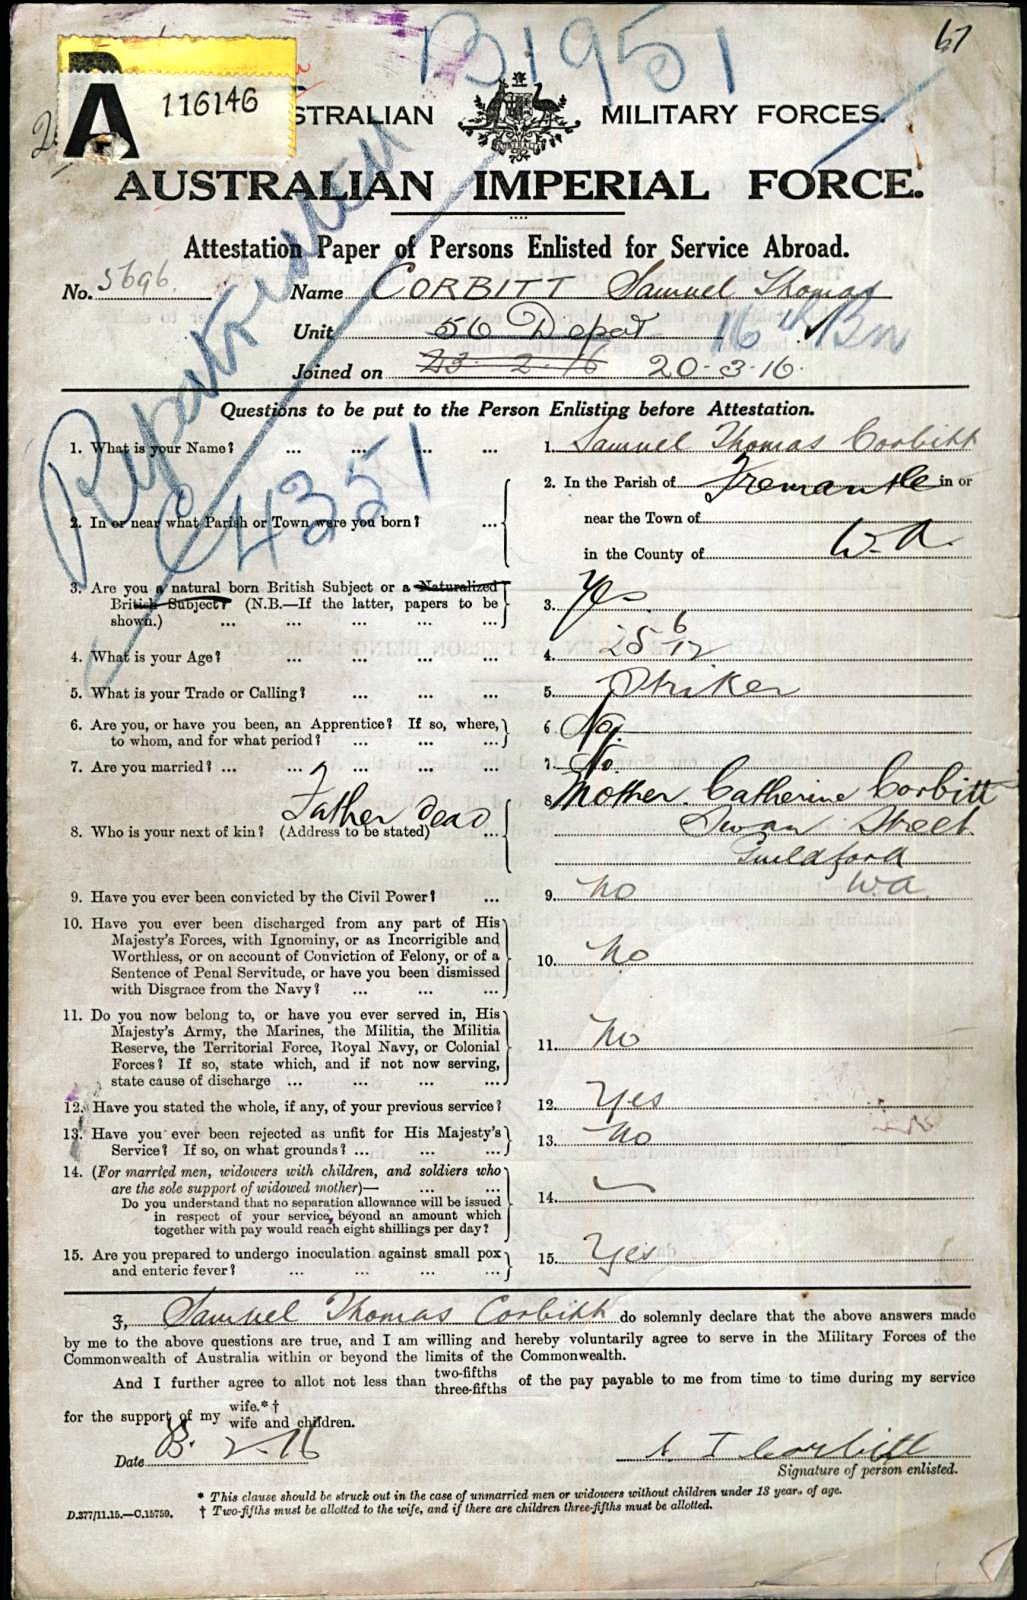 B1951
67
A 116146
STRALIAN MILITARY FORCES.
AUSTRALIAN IMPERIAL FORCE.
Attestation Paper of Persons Enlisted for Service Abroad.
No. 5696. Name CORBITT Samuel Thomas
Unit 56 Depot 16th Bn
Joined on 23. 2. 16 20-3-16.
Repatriated
C4351
Questions to be put to the Person Enlisting before Attestation.
1. What is your Name? ... ... ... ... 1. Samuel Thomas Corbitt
2. In or near what Parish or Town were you born? ... 2. In the Parish of Fremantle in or
near the Town of
in the County of W.A.
3. Are you a natural born British Subject or a Naturalized
British Subject? (N.B.—If the latter, papers to be
shown.) ... ... ... ... ... 3. Yes.
4. What is your Age? ... ... ... ... 4. 25 6/12
5. What is your Trade or Calling? ... ... ... 5. Striker
6. Are you, or have you been, an Apprentice? If so, where,
to whom, and for what period? ... ... ... 6 No.
7. Are you married? ... ... ... ... ... 7. No.
Father dead
8. Who is your next of kin? (Address to be stated) ... 8 Mother. Catherine Corbitt
Swan Street
Guildford
W.A.
9. Have you ever been convicted by the Civil Power? ... 9. No
10. Have you ever been discharged from any part of His
Majesty's Forces, with Ignominy, or as Incorrigible and
Worthless, or on account of Conviction of Felony, or of a
Sentence of Penal Servitude, or have you been dismissed
with Disgrace from the Navy? ... ... ... 10. No
11. Do you now belong to, or have you ever served in, His
Majesty's Army, the Marines, the Militia, the Militia
Reserve, the Territorial Force, Royal Navy, or Colonial
Forces? If so, state which, and if not now serving,
state cause of discharge ... ... ... ... 11. No
12. Have you stated the whole, if any, of your previous service? 12. Yes
13. Have you ever been rejected as unfit for His Majesty's
Service? If so, on what grounds? ... ... ... 13. No
14. (For married men, widowers with children, and soldiers who
are the sole support of widowed mother)— ... ...
Do you understand that no separation allowance will be issued
in respect of your service, beyond an amount which
together with pay would reach eight shillings per day? 14. —
15. Are you prepared to undergo inoculation against small pox
and enteric fever? ... ... ... ... 15. Yes
I, Samuel Thomas Corbitt do solemnly declare that the above answers made
by me to the above questions are true, and I am willing and hereby voluntarily agree to serve in the Military Forces of the
Commonwealth of Australia within or beyond the limits of the Commonwealth.
And I further agree to allot not less than two-fifths three-fifths of the pay payable to me from time to time during my service
for the support of my wife.*† wife and children.
Date 2-16 S. T Corbitt
Signature of person enlisted.
* This clause should be struck out in the case of unmarried men or widowers without children under 18 years of age.
D.377/11.15.—C.15759. † Two-fifths must be allotted to the wife, and if there are children three-fifths must be allotted.